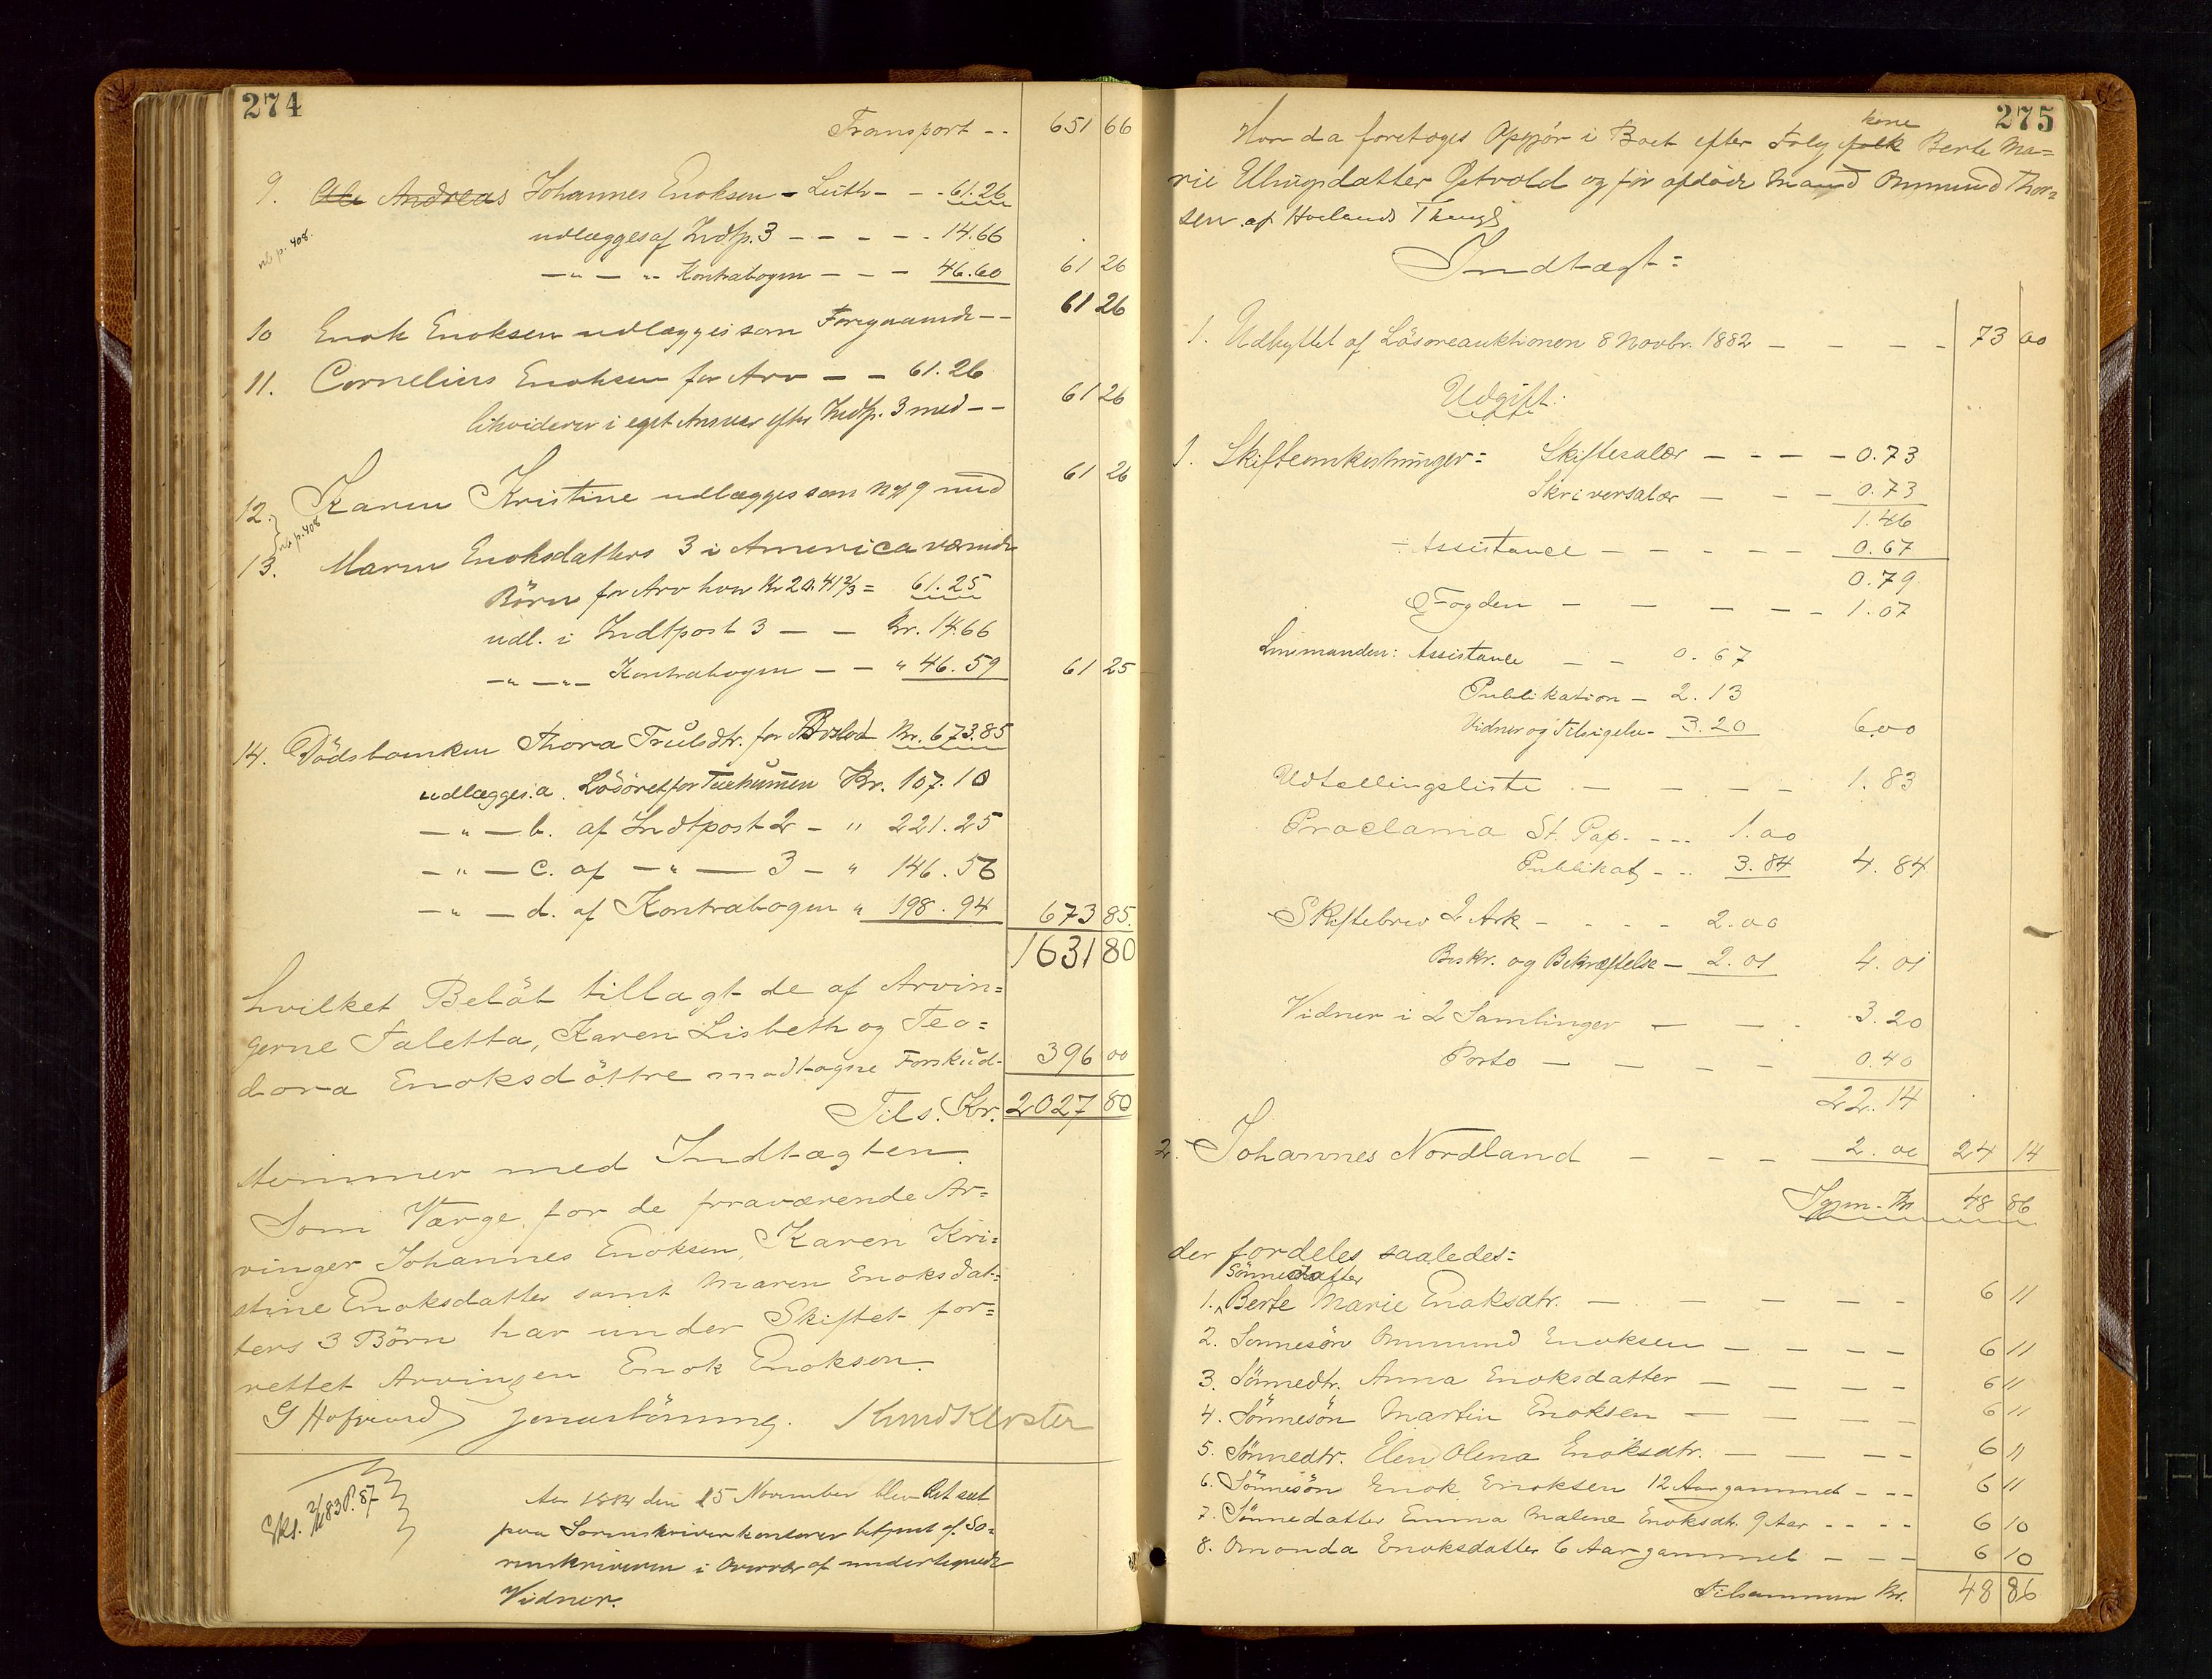 274
Transport -- 651 66
9. Ole Andreas Johannes Enoksen - Leith - - 61.26
udlægges af Indtp. 3 - - - - - 14.66
nb p. 408.
-"- - " Kontrabogen - - - 46.60 61 26
10 Enok Enoksen udlægges som Foregaaende -- 61 26
11. Cornelius Enoksen for Arv - - 61.26
likviderer i eget Ansvar efter Indtp. 3 med -- 61 26
12. Karen Kristine udlægges som No 9 med 61 26
nb p. 408
13. Maren Enoksdatters 3 i America værende
Börn for Arv hver Kr 20.41 2/3 = 61.25
udl. i Indtpost 3 - - Kr. 14.66
-"- -"- Kontrabogen - - " 46.59 61 25
14. Dödsboenken Thora Trulsdtr. for Boslod Kr. 673.85
udlægges: a. Lösöret for Taxtsummen Kr. 107.10
-"- b. af Indtpost 2 - " 221.25
-"- c. af -"- 3 - " 146.56
-"- d. af Kontrabogen " 198.94 673 85.
1631 80
hvilket Belöb tillagt de af Arvin=
gerne Taletta, Karen Lisbeth og Teo=
dora Enoksdöttre modtagne Forskud - 396 00
Tils. Kr. 2027 80
stemmer med Indtægten.
Som Værge for de fraværende Ar=
vinger Johannes Enoksen, Karen Kri=
stine Enoksdatter samt Maren Enoksdat=
ters 3 Börn har under Skiftet for=
rettet Arvingen Enok Enokson.
G Hofgaard Jonas Lönning. Knud Kloster
Skl. 2/11 83 P. 87
Aar 1882 den 15 November blev Ret sat
paa Sorenskriverkontoret betjent af So=
renskriveren i Overvær af undertegnede
Vidner.
275
Hvor da foretoges Opgjör i Boet efter Folg
kone
folk Berte Ma=
rie Ellingsdatter Østvold og för afdöde Mand Ommund Thor=
sen af Hoelands Thingl
Indtægt:
1. Udbyttet af Lösöreauktionen 8 Novbr. 1882 - - - - 73 00
Udgift:
1. Skifteomkostninger: Skiftesalær - - - - 0.73
Skriversalær - - - 0.73
1.46
÷ Assistance - - - - - 0.67
0.79
Fogden - - - - - 1.07
Lensmanden: Assistance - - 0.67
Publikation - 2.13
Vidner og Tilsigelse - 3.20 6.00
Udtællingsliste - - - - 1.83
Proclama St. Pap. - - - 1.00
Publikat. - - 3.84 4.84
Skiftebrev 2 Ark - - - - 2.00
Beskr. og Bekræftelse - 2.01 4.01
Vidner i 2 Samlinger - - - 3.20
Porto - - - - 0.40
22.14
2. Johannes Nordland - - - 2.00 24 14
Igjen - Kr 48 86
der fordeles saaledes:
Sönnedatter
1. Berte Marie Enoksdtr. - - - - - - 6 11
2. Sonnesön Ommund Enoksen - - - - 6 11
3. Sönnedtr. Anna Enoksdatter - - - - 6 11
4. Sönnesön Martin Enoksen - - - - 6 11
5. Sönnedtr. Elen Olena Enoksdtr. - - - - 6 11
6. Sönnesön Enok Enoksen 12 Aar gammel - - - 6 11
7. Sönnedatter Emma Malene Enoksdtr. 9 Aar - - - - 6 10
8. Omonda Enoksdatter 6 Aar gammel - - - 6 10
Tilsammen Kr. 48 86